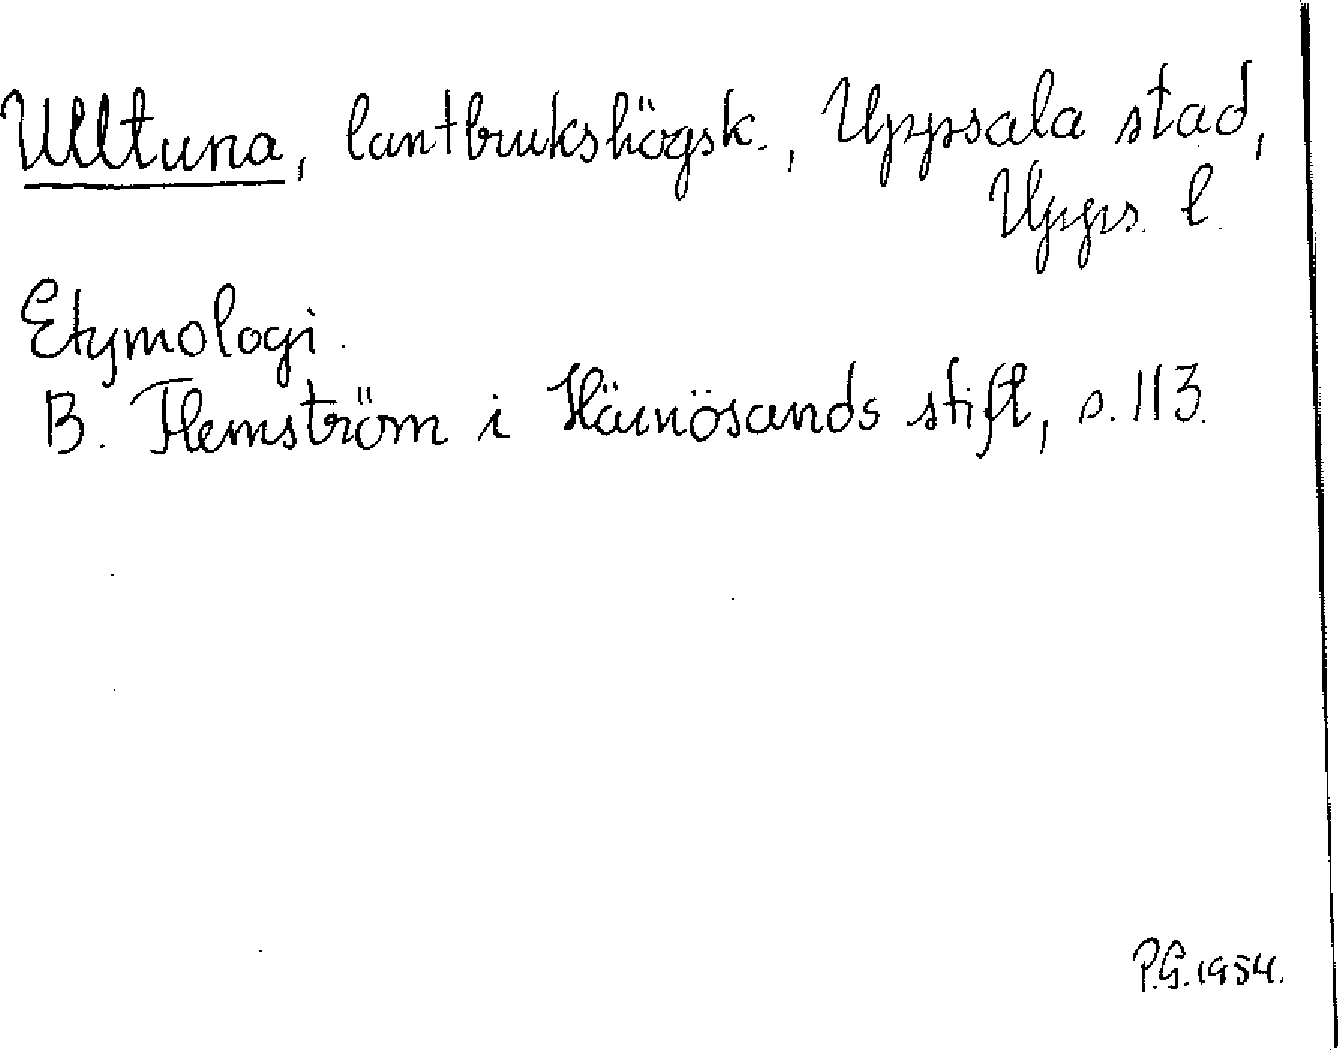 Ultuna, lantbrukshögsk., Uppsala stad,
Upps. l.
Etymologi.
B. Flemström i Härnösands stift, s. 113.
P.G. 1954.